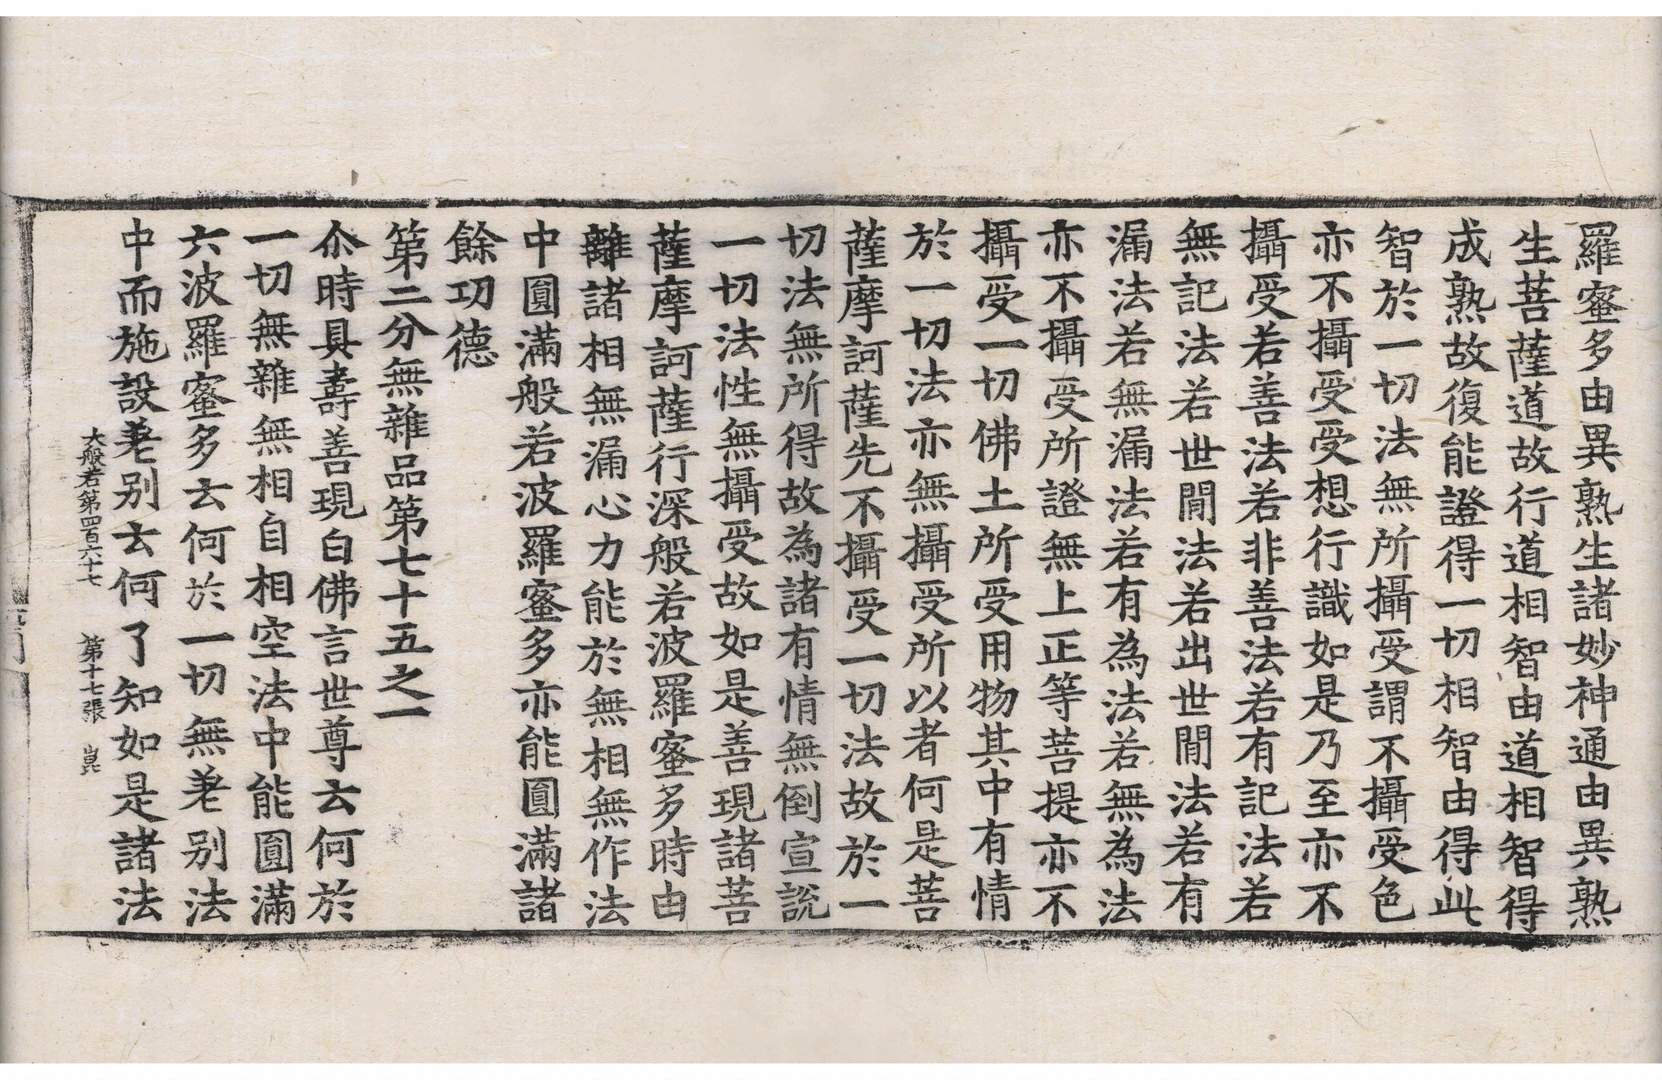 羅蜜多由異熟生諸妙神通由異熟
生菩薩道故行道相智由道相智得
成熟故復能證得一切相智由得此
智於一切法無所攝受謂不攝受色
亦不攝受受想行識如是乃至亦不
攝受若善法若非善法若有記法若
無記法若世閒法若出世閒法若有
漏法若無漏法若有為法若無為法
亦不攝受所證無上正等菩提亦不
攝受一切佛土所受用物其中有情
於一切法亦無攝受所以者何是菩
薩摩訶薩先不攝受一切法故於一
切法無所得故為諸有情無倒宣說
一切法性無攝受故如是善現諸菩
薩摩訶薩行深般若波羅蜜多時由
離諸相無漏心力能於無相無作法
中圓滿般若波羅蜜多亦能圓滿諸
餘功德
第二分無雜品第七十五之一
尒時具壽善現白佛言世尊云何於
一切無雜無相自相空法中能圓滿
六波羅蜜多云何於一切無差別法
中而施設差別云何了知如是諸法
大般若第四百六十七 第十七張 崑